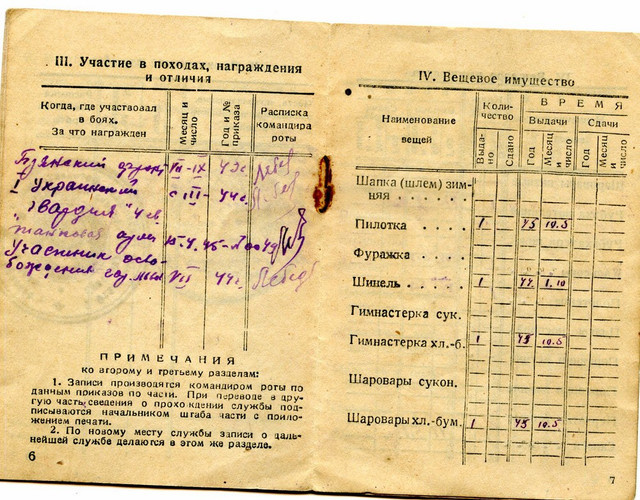 III. Участие в походах, награждения
и отличия
Когда, где участвовал
в боях.
За что награжден
Месяц и
число
Год и №
приказа
Расписка
командира
роты
Брянский фронт VII-IX 43г Лебед
I Украинский с III- 44г. Лебед
"гвардия" 4 гв
танковая 
Участник осво-
бождения VII 44г Лебед
ПРИМЕЧАНИЯ
ко второму и третьему разделам:
1. Записи производятся командиром роты по
данным приказов по части. При переводе в дру-
гую часть сведения о прохождении службы под-
писываются начальником штаба части с прило-
жением печати.
2. По новому месту службы записи о даль-
нейшей службе делаются в этом же разделе.
6
IV. Вещевое имущество
Наименование
вещей
Коли-
чество
ВРЕМЯ
Выдачи
Сдачи
Выда-
но
Сдано
Год
Месяц
и
число
Год
Месяц
и
число
Шапка (шлем) зим-
няя . . . .
Пилотка . . . . 1 45 10.5
Фуражка . . . .
Шинель . . . . 1 44 1.10
Гимнастерка сук.
Гимнастерка хл.-б. 1 45 10.5
Шаровары сукон.
Шаровары хл.-бум. 1 45 10.5
7